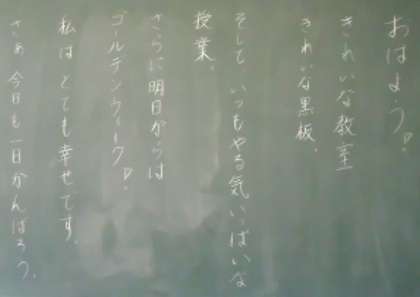 おはよう!
きれいな教室
きれいな黒板。
そして、いつもやる気いっぱいな
授業。
さらに明日からは
ゴールデンウィーク!
私はとても幸せです。
さあ今日も一日がんばろう。